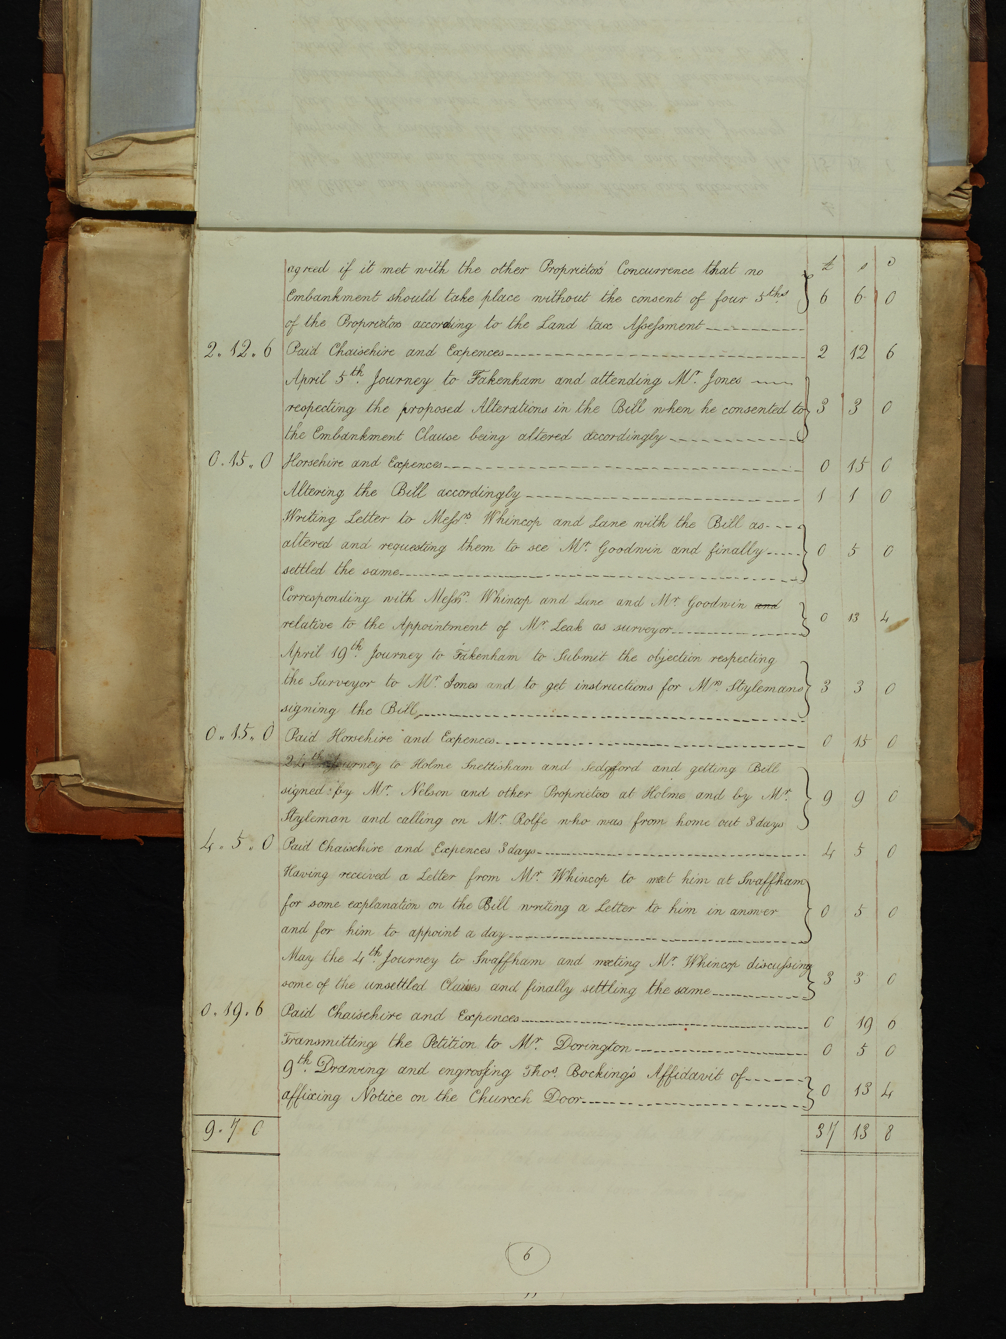 £ s D
agreed if it met with the other Proprietors' Concurrence that no
Embankment should take place without the consent of four 5ths 6 6 0
of the Proprietors according to the Land tax Assessment
2. 12. 6 Paid Chaisehire and Expences 2 12 6
April 5th Journey to Fakenham and attending Mr Jones
respecting the proposed Alterations in the Bill when he consented to 3 3 0
the Embankment Clause being altered accordingly
0. 15. 0 Horsehire and Expences 0 15 0
Altering the Bill accordingly 1 1 0
Writing Letter to Messrs Whincop and Lane with the Bill as
altered and requesting them to see Mr Goodwin and finally 0 5 0
settled the same
Corresponding with Messrs Whincop and Lane and Mr Goodwin and
relative to the Appointment of Mr Leak as surveyor 0 13 4
April 19th Journey to Fakenham to Submit the objection respecting
the Surveyor to Mr Jones and to get instructions for Mrs Stylemans 3 3 0
signing the Bill
0. 15. 0 Paid Horsehire and Expences 0 15 0
24th Journey to Holme Snettisham and Sedgford and getting Bill
signed by Mr Nelson and other Proprietors at Holme and by Mr 9 9 0
Styleman and calling on Mr Rolfe who was from home out 3 days
4. 5. 0 Paid Chaisehire and Expences 3 days 4 5 0
Having received a Letter from Mr Whincop to meet him at Swaffham
for some explanation on the Bill writing a Letter to him in answer 0 5 0
and for him to appoint a day
May the 4th Journey to Swaffham and meeting Mr Whincop discussing
some of the unsettled Clauses and finally settling the same 3 3 0
0. 19. 6 Paid Chaisehire and Expences 0 19 0
Transmitting the Petition to Mr Dorington 0 5 0
9th Drawing and engrossing Thos Bocking's Affidavit of
affixing Notice on the Church Door 0 13 4
9. 7 0 37 13 8
6